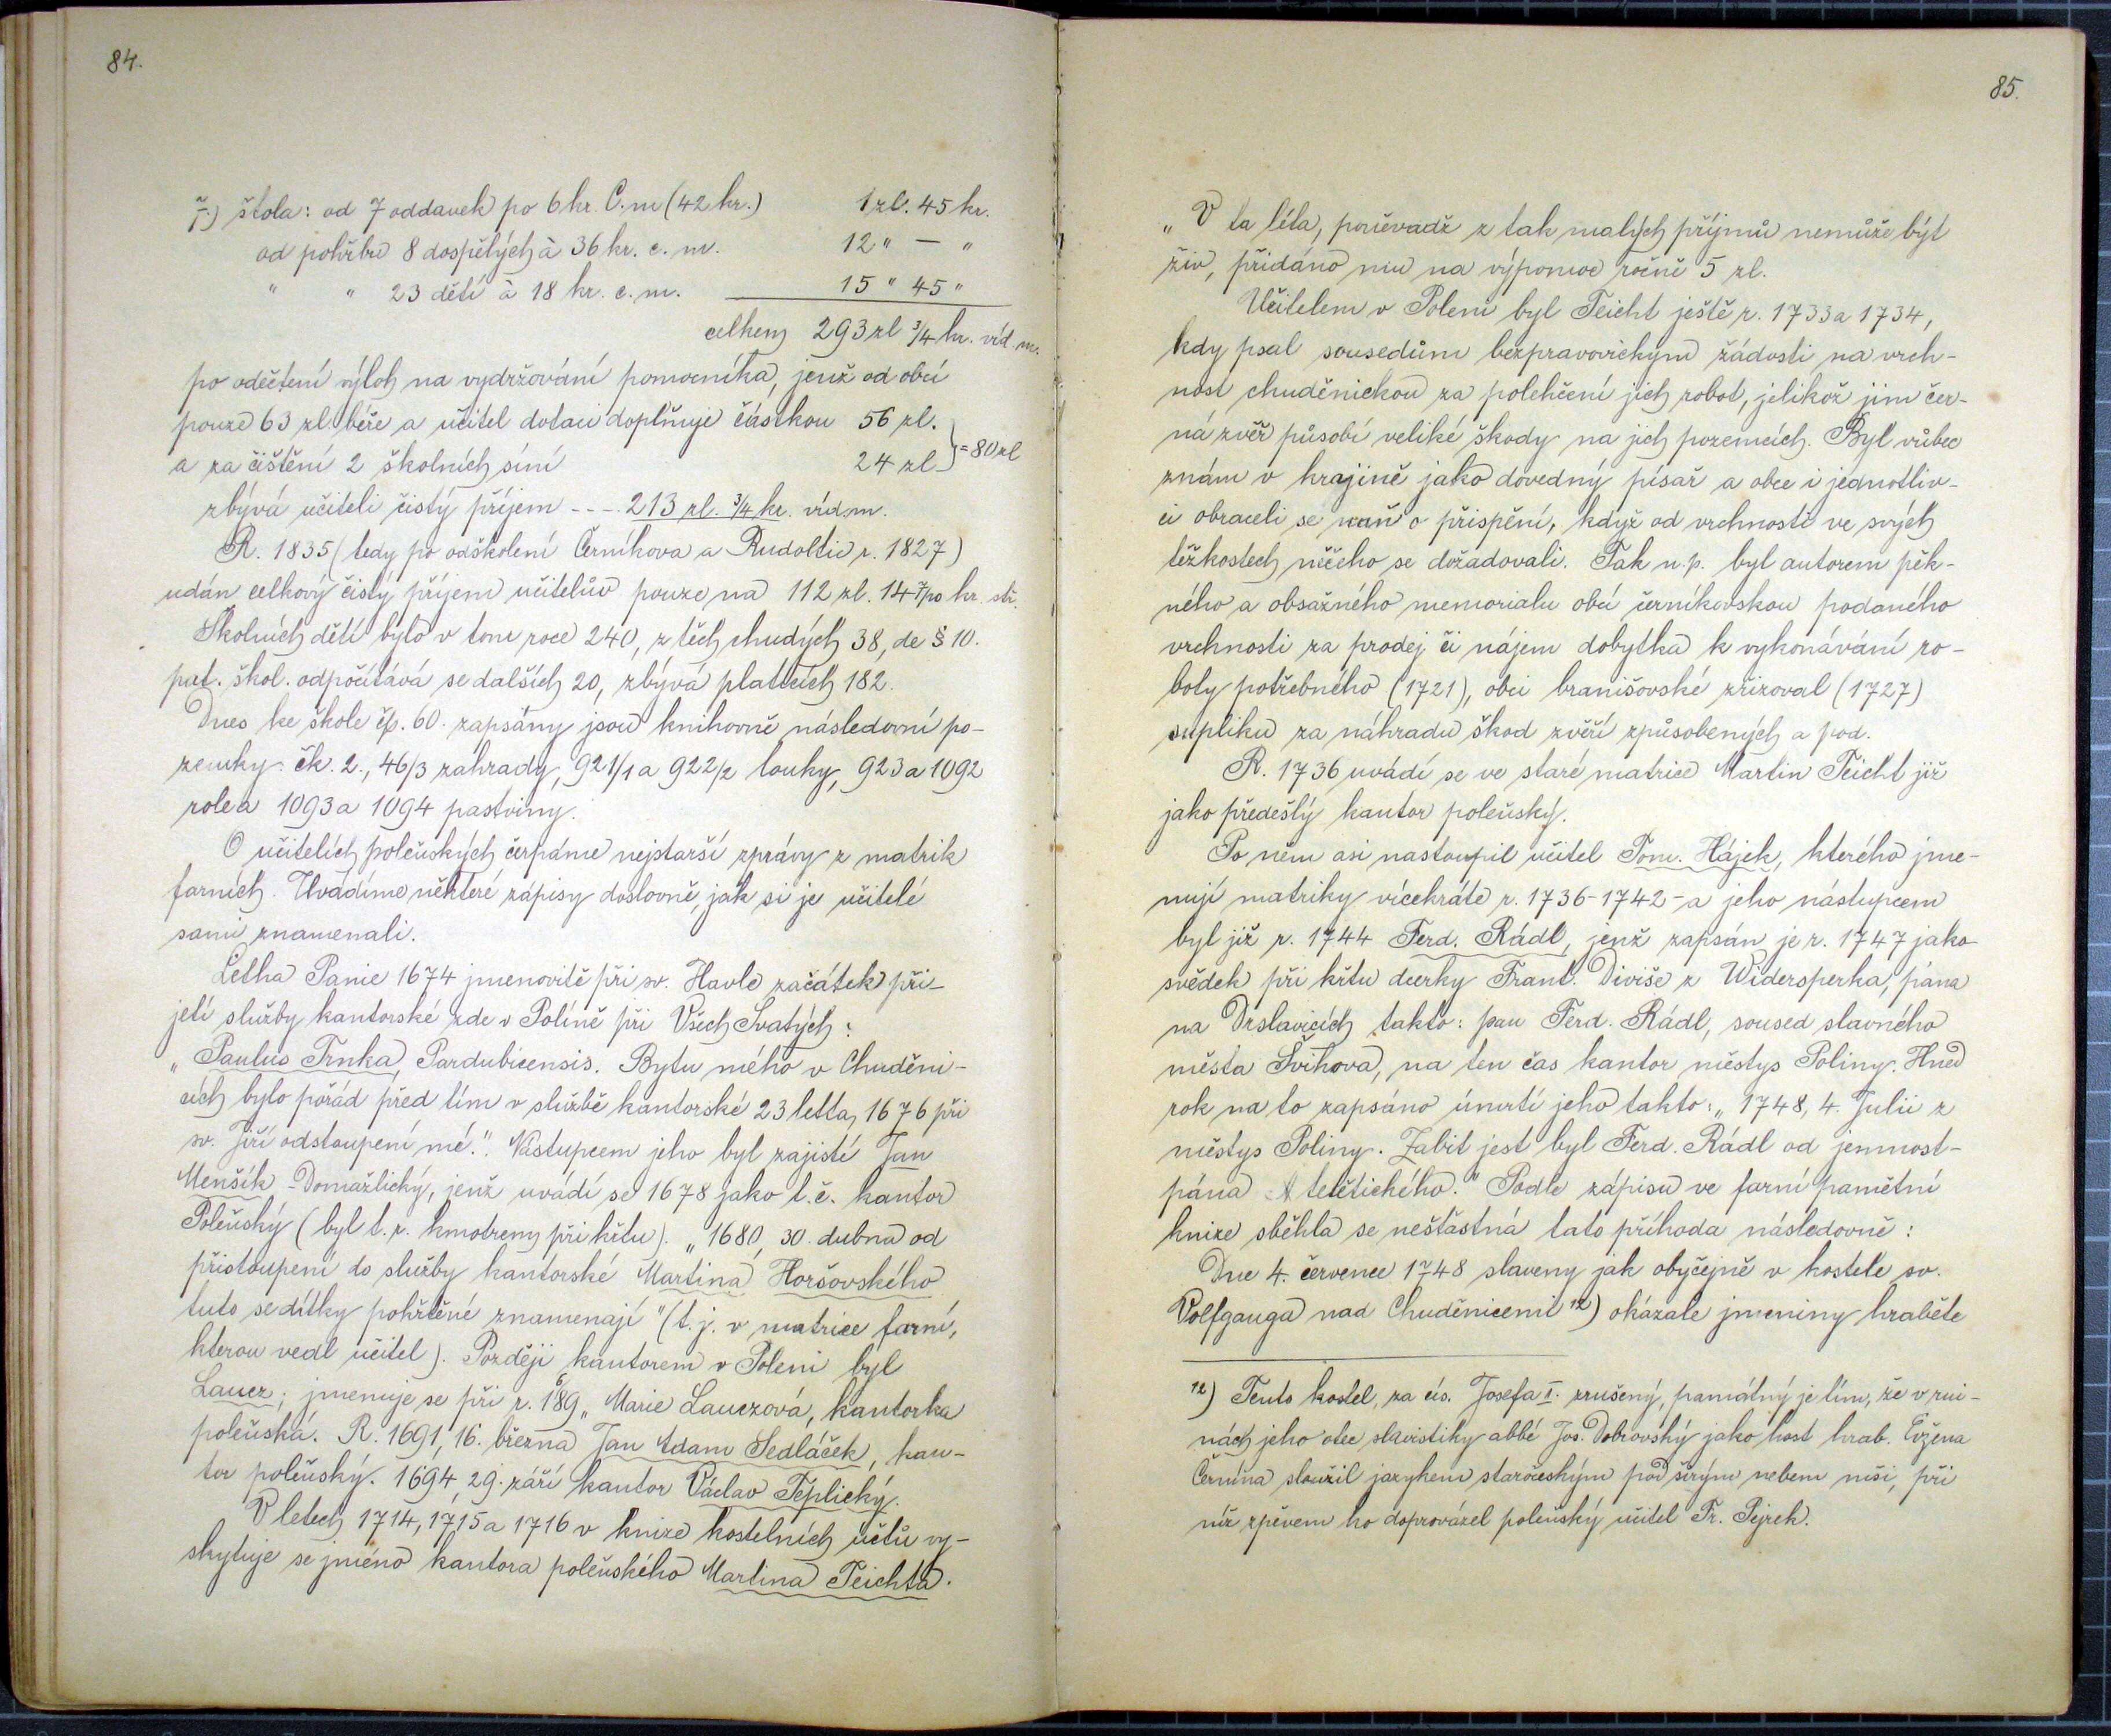 84.
7.) štola: od 7 oddavek po 6 kr. C. m (42 kr.) 1 zl. 45 kr.
od pohřbu 8 dospělých à 36 kr. c. m. 12 " — "
" " 23 dětí à 18 kr. c. m. 15 " 45 "
celkem 293 zl 3/4 kr. víd. m.
po odečtení výloh na vydržování pomocníka, jenž od obcí
pouze 63 zl. béře a učitel dotaci doplňuje částkou 56 zl.
a za čištění 2 školních síní 24 zl } = 80 zl
zbývá učiteli čistý příjem - - - 213 zl. 3/4 kr. víd. m.
R. 1835 (tedy po odškolení Černíkova a Rudoltic r. 1827)
udán celkový čistý příjem učitelův pouze na 112 zl. 14 7/10 kr. stř.
Školních dětí bylo v tom roce 240, z těch chudých 38, de § 10.
pat. škol. odpočítává se dalších 20, zbývá platících 182.
Dnes ke škole čp. 60. zapsány jsou knihovně následovní po-
zemky: čk. 2., 46/3 zahrady, 921/1 a 922/2 louky, 923 a 1092
role a 1093 a 1094 pastviny.
O učitelích poleňských čerpáme nejstarší zprávy z matrik
farních. Uvádíme některé zápisy doslovně, jak si je učitelé
sami znamenali.
Letha Panie 1674 jmenovitě při sv. Havle začátek při-
jetí služby kantorské zde v Políně při Všech Svatých:
"Paulus Trnka, Pardubicensis. Bytu mého v Chuděni-
cích bylo pořád před tím v službě kantorské 23 letta, 1676 při
sv. Jiří odstoupení mé.". Nástupcem jeho byl zajisté Jan
Menšík - Domažlický, jenž uvádí se 1678 jako t. č. kantor
Poleňský (byl t. r. kmotrem při křtu). "1680, 30. dubna od
přistoupení do služby kantorské Martina Horšovského
tuto se dítky pokřtěné znamenají" (t. j. v matrice farní,
kterou vedl učitel). Později kantorem v Poleni byl
Laucz; jmenuje se při r. 1689 "Marie Lauczová, kantorka
poleňská. R. 1691, 16. března Jan Adam Sedláček, kan-
tor poleňský. 1694, 29. září kantor Václav Teplický.
V letech 1714, 1715 a 1716 v knize kostelních účtů vy-
skytuje se jméno kantora poleňského Martina Teichta.
85.
"V ta léta, poněvadž z tak malých příjmů nemůže být
živ, přidáno mu na výpomoc ročně 5 zl.
Učitelem v Poleni byl Teicht ještě r. 1733 a 1734,
kdy psal sousedům bezpravovickým žádosti na vrch-
nost chuděnickou za polehčení jich robot, jelikož jim čer-
ná zvěř působí veliké škody na jich pozemcích. Byl vůbec
znám v krajině jako dovedný písař a obce i jednotliv-
ci obraceli se naň o přispění, když od vrchnosti ve svých
těžkostech něčeho se dožadovali. Tak n. p. byl autorem pěk-
ného a obsažného memorialu obcí černíkovskou podaného
vrchnosti za prodej či nájem dobytka k vykonávání ro-
boty potřebného (1721), obci branišovské zřizoval (1727)
supliku za náhradu škod zvěří způsobených a pod.
R. 1736 uvádí se ve staré matrice Martin Teicht již
jako předešlý kantor poleňský.
Po něm asi nastoupil učitel Tom. Hájek, kterého jme-
nují matriky vícekráte r. 1736-1742 - a jeho nástupcem
byl již r. 1744 Ferd. Rádl, jenž zapsán je r. 1747 jako
svědek při křtu dcerky Frant. Diviše z Widersperka, pána
na Drslavicích takto: pan Ferd. Rádl, soused slavného
města Švihova, na ten čas kantor městys Poliny. Hned
rok na to zapsáno úmrtí jeho takto: "1748, 4. Julii z
městys Poliny. Zabit jest byl Ferd. Rádl od jemnost-
pána tetětického." Podle zápisu ve farní pamětní
knize sběhla se nešťastná tato příhoda následovně:
Dne 4. července 1748 slaveny jak obyčejně v kostele sv.
Volfganga nad Chuděnicemi 12) okázale jmeniny hraběte
12) Tento kostel, za cís. Josefa II. zrušený, památný je tím, že v rui-
nách jeho otec slavistiky abbé Jos. Dobrovský jako host hrab. Evžena
Černína sloužil jazykem staročeským pod širým nebem mši, při
níž zpěvem ho doprovázel poleňský učitel Fr. Pejrek.